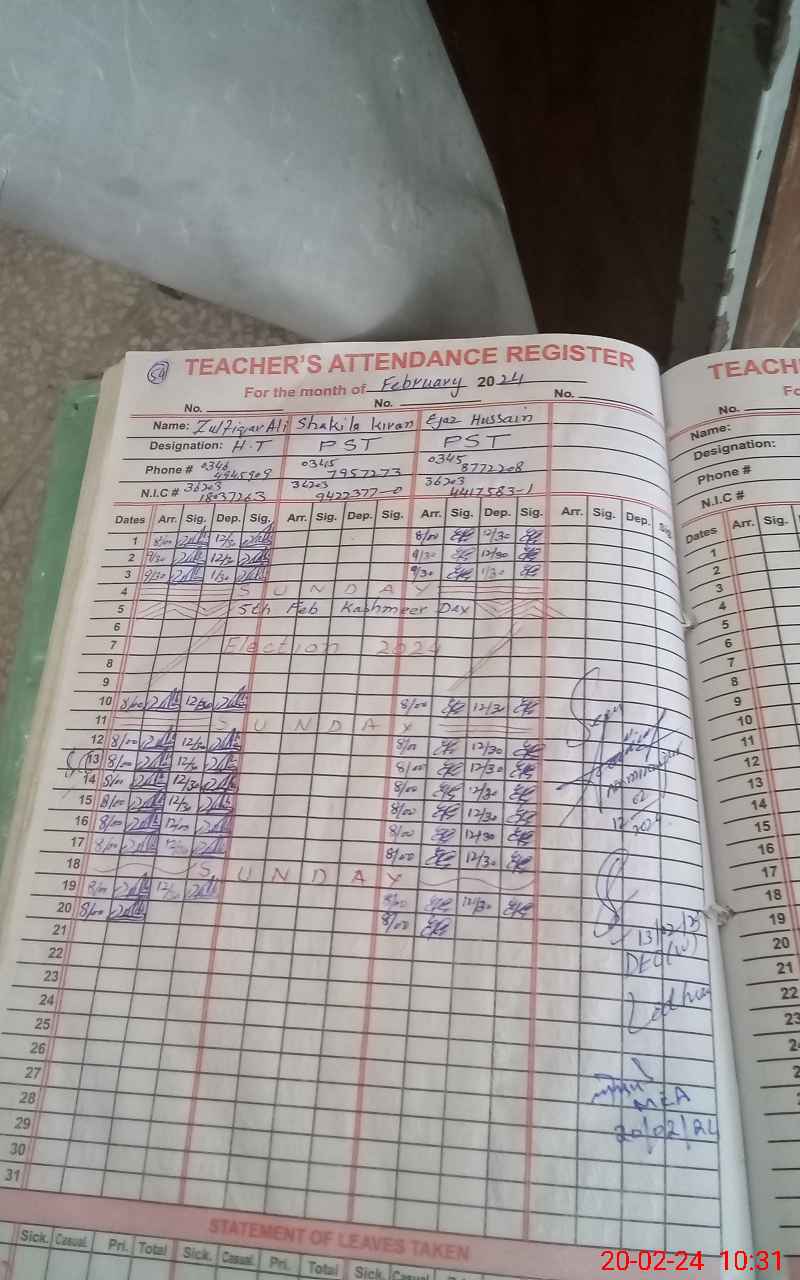 54 TEACHER'S ATTENDANCE REGISTER
For the month of February 2024
No. No. No.
Name: Zulfiqar Ali Shakila Kiran Ejaz Hussain
Designation: H.T PST PST
Phone # 0346 4945909 0345 7957273 0345 8772208
N.I.C # 36203 18037263 36203 9422377-0 36203 4417583-1
Dates Arr. Sig. Dep. Sig. Arr. Sig. Dep. Sig. Arr. Sig. Dep. Sig. Arr. Sig. Dep. Sig.
1 8/00 12/30 8/00 12/30
2 9/30 12/30 9/30 12/30
3 9/30 1/30 9/30 1/30
4 SUNDAY
5 5th Feb Kashmeer Day
6
7 Election 2024
8
9
10 8/00 12/30 8/00 12/30
11 SUNDAY
12 8/00 12/30 8/00 12/30
13 8/00 12/30 8/00 12/30
14 8/00 12/30 8/00 12/30
15 8/00 12/30 8/00 12/30
16 8/00 12/00 8/00 12/30
17 8/00 12/30 8/00 12/30
18 SUNDAY
19 8/00 12/30 8/00 12/30
20 8/00 8/00
21
22
23
24
25
26
27
28
29
30
31
12
02
2024
13/02/24
DEO (W)
Lodhran
MEA
20/02/24
STATEMENT OF LEAVES TAKEN
Sick. Casual. Pri. Total Sick. Casual. Pri. Total Sick. Casual
TEACH
No.
Name:
Designation:
Phone #
N.I.C #
Dates Arr. Sig.
1
2
3
4
5
6
7
8
9
10
11
12
13
14
15
16
17
18
19
20
21
22
23
20-02-24 10:31